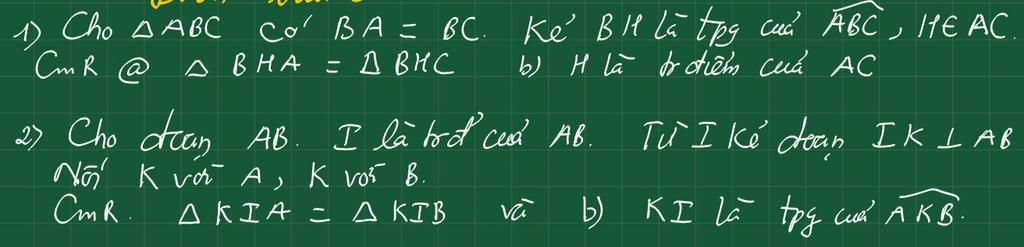 1) Cho △ABC có BA = BC. Kẻ BH là tpg của ABC, H∈AC.
CmR @ △BHA = △BHC b) H là tr điểm của AC
2) Cho đoạn AB. I là trđ của AB. Từ I kẻ đoạn IK ⊥ AB
Nối K với A, K với B.
CmR. △KIA = △KIB và b) KI là tpg của AKB.